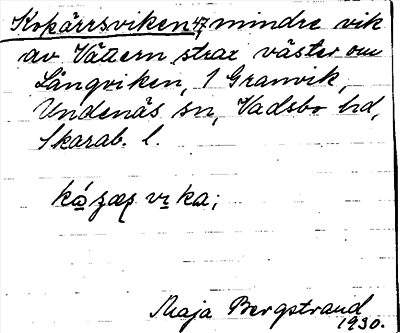 Kokärrsviken, mindre vik
av Vättern strax väster om
Långviken, 1 Granvik,
Undenäs sn, Vadsbo hd,
Skarab. l.
Maja Bergstrand
1930.